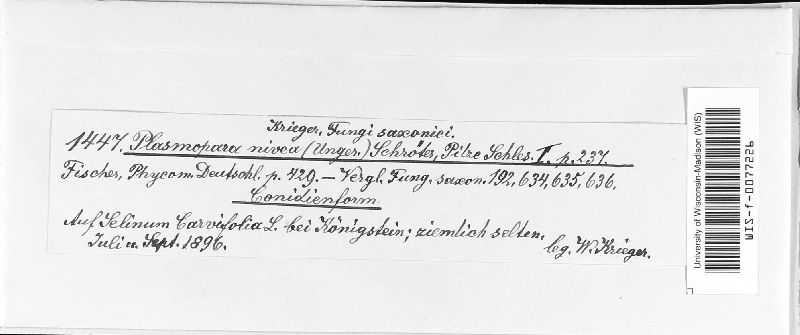 Krieger, Fungi saxonici.
1447. Plasmopara nivea (Unger.) Schröter, Pilze Schles. I. p. 237.
Fischer, Phycom. Deutschl. p. 429. — Vergl. Fung. saxon. 192, 634, 635, 636.
Conidienform
Auf Selinum Carvifolia L. bei Königstein; ziemlich selten.
Juli u. Sept. 1896.
leg. W. Krieger.
University of Wisconsin-Madison (WIS)
WIS-f-0077226